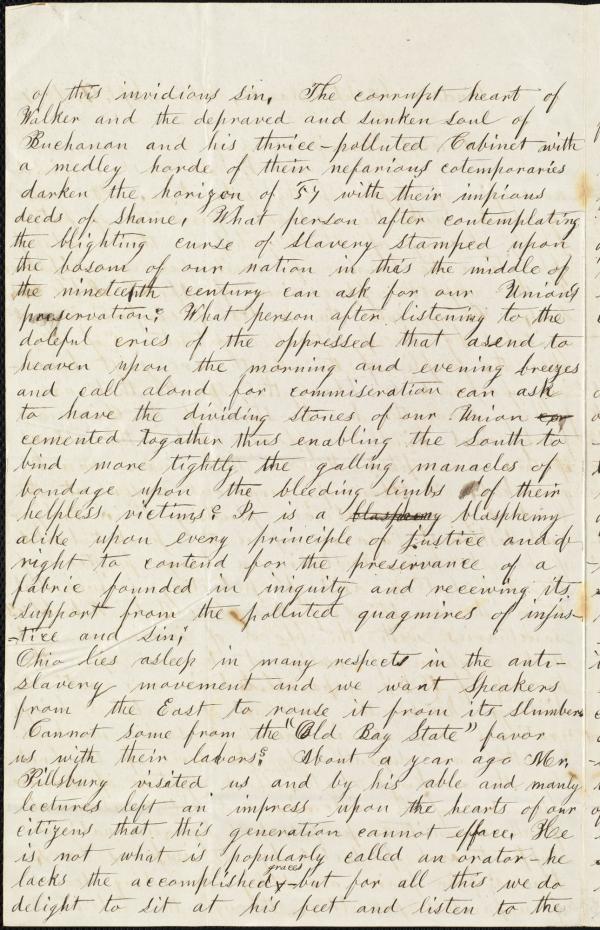 of this invidious sin. The corrupt heart of
Walker and the depraved and sunken soul of
Buchanan and his thrice-polluted Cabinet with
a medley horde of their nefarious cotemporaries
darken the horizon of 57 with their impious
deeds of shame. What person after contemplating
the blighting curse of slavery stamped upon
the bosom of our nation in this the middle of
the nineteenth century can ask for our Union's
preservation? What person after listening to the
doleful cries of the oppressed that asend to
heaven upon the morning and evening breezes
and call aloud for commiseration can ask
to have the dividing stones of our Union
cemented togather thus enabling the South to
bind more tightly the galling manacles of
bondage upon the bleeding limbs of their
helless victims? It is a blasphemy blasphemy
alike upon every principle of justice and of
right to contend for the preservance of a
fabric founded in iniquity and receiving its
support from the polluted quagmires of injus-
-tice and sin;
Ohio lies asleep in many respects in the anti-
slavery movement and we want speakers
from the East to rouse it from its slumbers
Cannot some from the "Old Bay State" favor
us with their labors? About a year ago Mr,
Pillsbury visited us and by his able and manly
lectures left an impress upon the hearts of our
citizens that this generation cannot efface. He
is not what is popularly called an orator-he
graces
lacks the accomplished-but for all this we do
delight to sit at his feet and listen to the